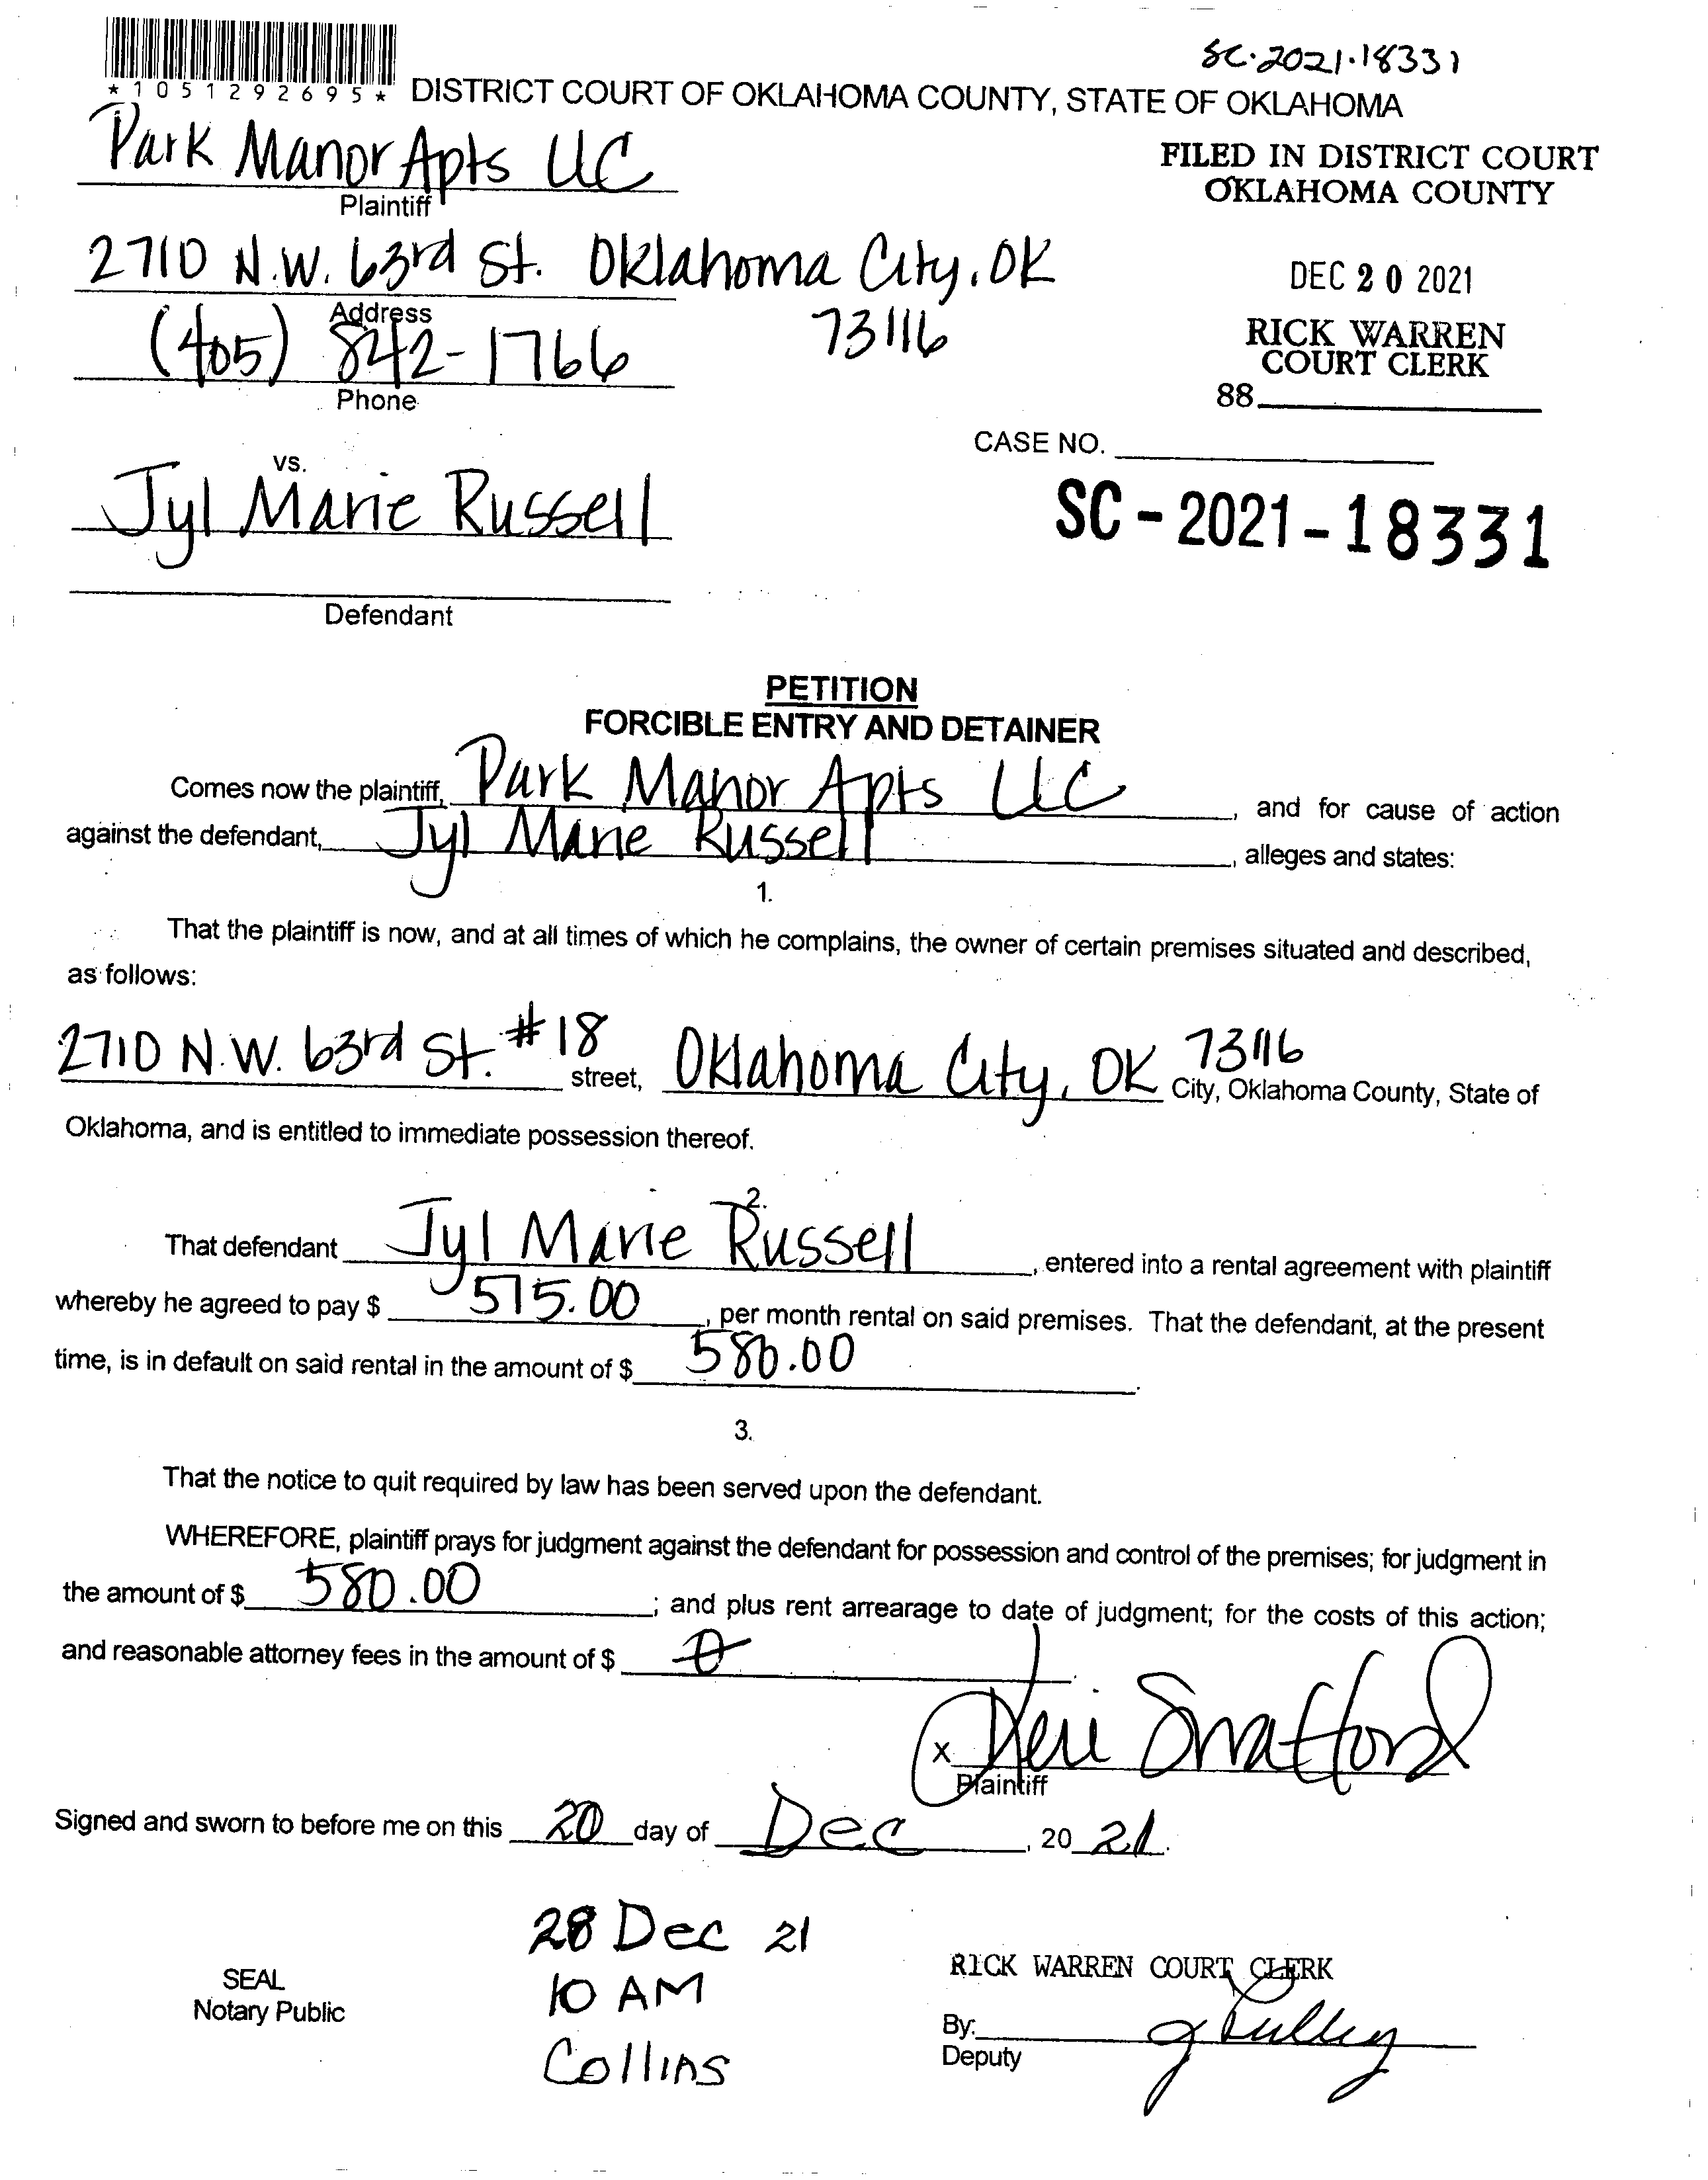 SC-2021-18331
*1051292695* DISTRICT COURT OF OKLAHOMA COUNTY, STATE OF OKLAHOMA
Park Manor Apts LLC
Plaintiff
FILED IN DISTRICT COURT
OKLAHOMA COUNTY
2710 N.W. 63rd St. Oklahoma City, OK
73116
Address
DEC 20 2021
(405) 842-1766
Phone
RICK WARREN
COURT CLERK
88
vs.
CASE NO.
Jyl Marie Russell
SC-2021-18331
Defendant
PETITION
FORCIBLE ENTRY AND DETAINER
Comes now the plaintiff, Park Manor Apts LLC, and for cause of action
against the defendant, Jyl Marie Russell, alleges and states:
1.
That the plaintiff is now, and at all times of which he complains, the owner of certain premises situated and described,
as follows:
2710 N.W. 63rd St. #18 street, Oklahoma City, OK 73116 City, Oklahoma County, State of
Oklahoma, and is entitled to immediate possession thereof.
2.
That defendant Jyl Marie Russell, entered into a rental agreement with plaintiff
whereby he agreed to pay $ 575.00, per month rental on said premises. That the defendant, at the present
time, is in default on said rental in the amount of $ 580.00.
3.
That the notice to quit required by law has been served upon the defendant.
WHEREFORE, plaintiff prays for judgment against the defendant for possession and control of the premises; for judgment in
the amount of $ 580.00; and plus rent arrearage to date of judgment; for the costs of this action;
and reasonable attorney fees in the amount of $ 0.
X
Plaintiff
Signed and sworn to before me on this 20 day of Dec, 20 21.
28 Dec 21
10 AM
Collins
SEAL
Notary Public
RICK WARREN COURT CLERK
By:
Deputy